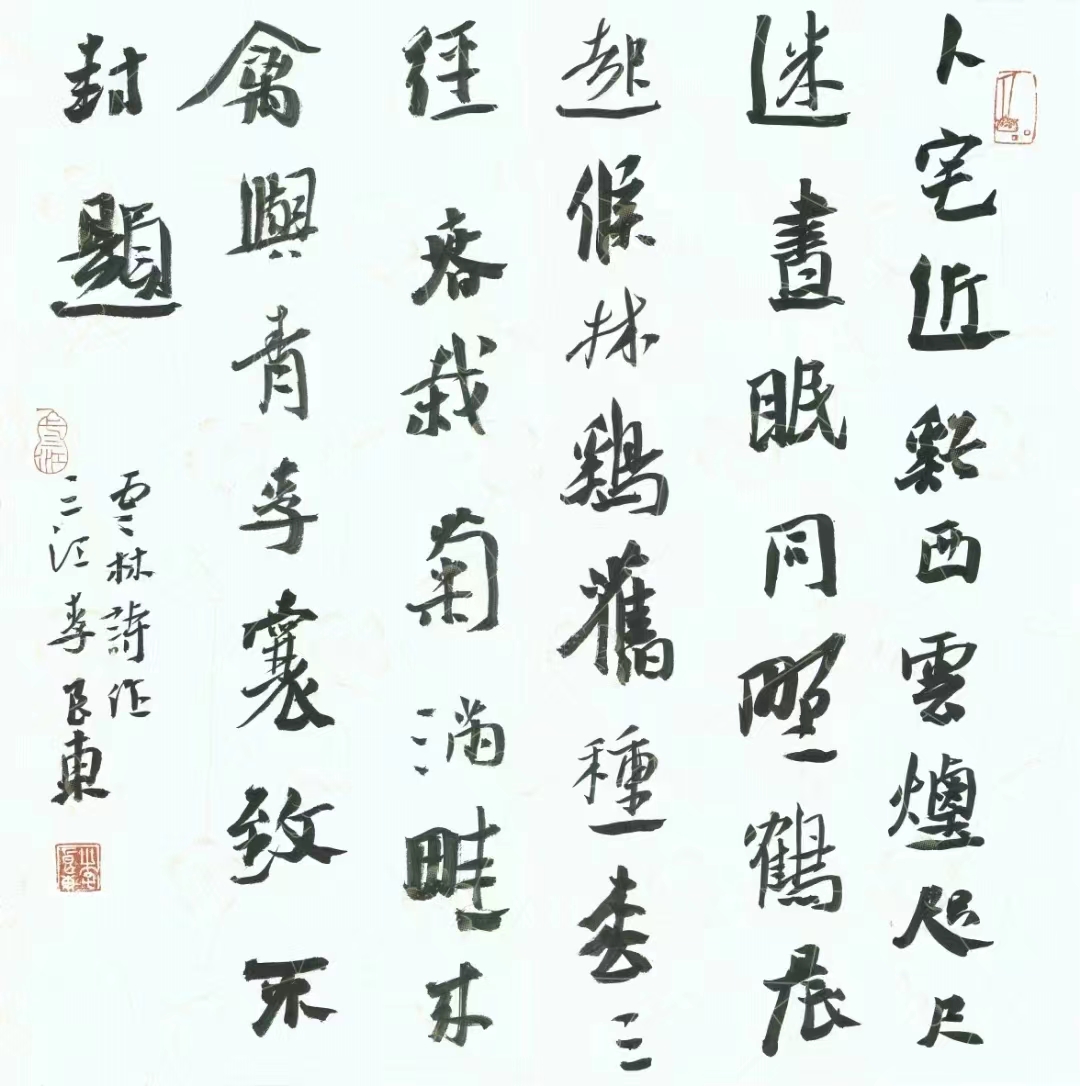 卜宅近谿西雲煙咫尺
迷晝眠同野鶴晨
起候林鷄舊種松三
徑春栽菊滿畦來
禽與青李囊致不
封題
雲林詩作
三江李良東